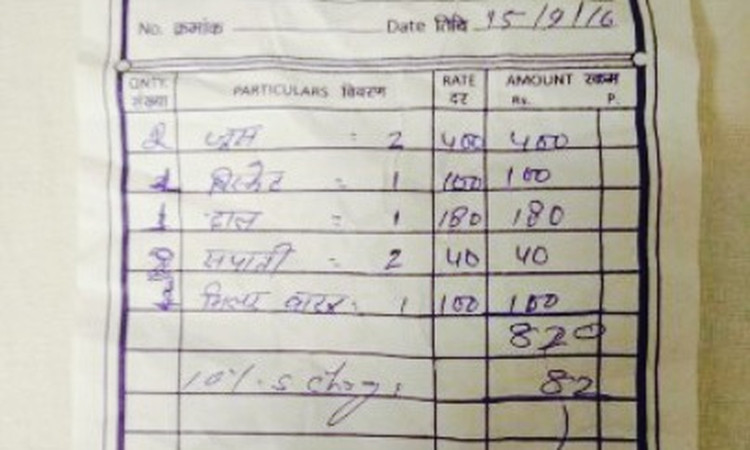 No. क्रमांक Date तिथि 15/9/16
QNTY. संख्या PARTICULARS विवरण RATE दर AMOUNT रकम Rs. P.
2 जूस = 2 400 400
1 बिस्केट = 1 100 100
1 दाल = 1 180 180
चपाती = 2 40 40
= 1 100 100
820
10%. s charg: 82